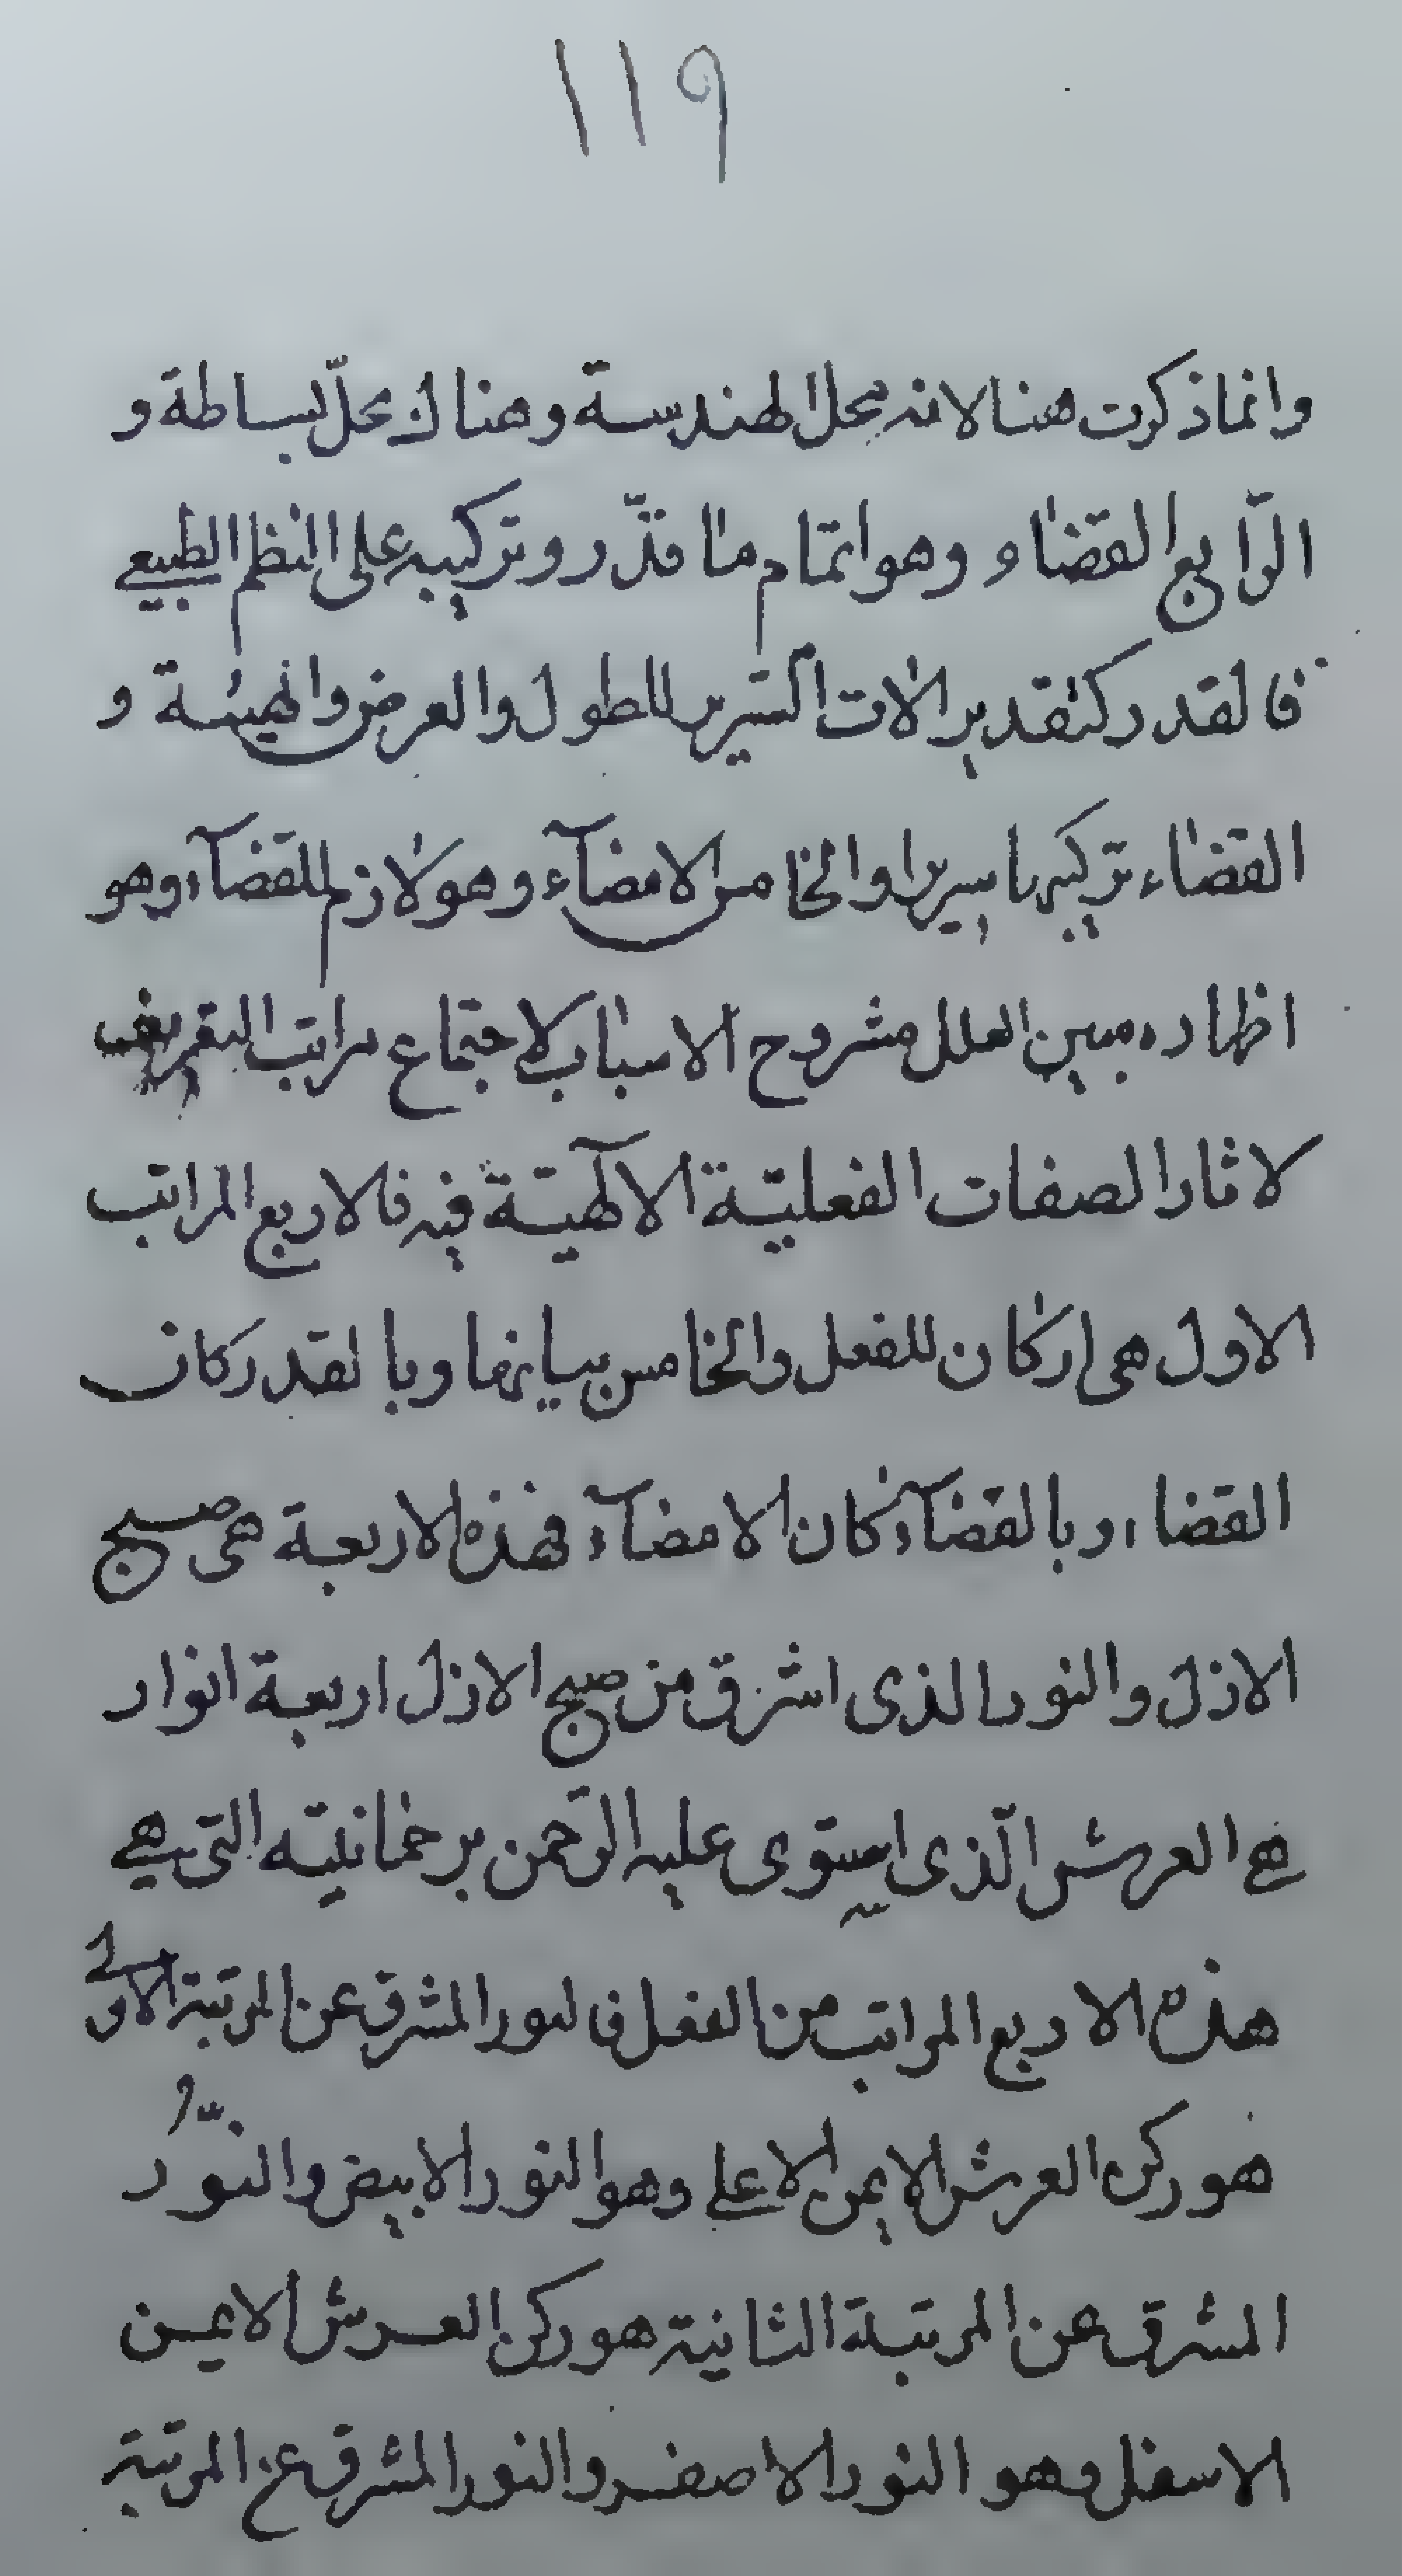 ١١٩
وانما ذكرت هنا لانه محل الهندسة وهناك محلّ بساطة و
الرّابع القضاء وهو اتمام ما قدّر وتركيبه على النظم الطبيعي
فالقدر كتقدير الات السّرير للطول والعرض والهيئة و
القضاء تركيبها سريرا والخامس الامضآء وهو لازم للقضآء وهو
اظهاره مبين العلل مشروح الاسباب لاجتماع مراتب التعريف
لاثار الصفات الفعليّة الالهيّة فيه فالاربع المراتب
الاول هى اركان للفعل والخامس بيانها وبالقدر كان
القضاء وبالقضآء كان الامضآء فهذه الاربعة هى صبح
الازل والنور الذى اشرق من صبح الازل اربعة انوار
هي العرش الّذى استوى عليه الرّحمن برحمانيّته التى هي
هذه الاربع المراتب من الفعل فالنور المشرق عن المرتبة الاولى
هو ركن العرش الايمن الاعلى وهو النور الابيض والنّور
المشرق عن المرتبة الثانية هو ركن العرش الايمن
الاسفل وهو النور الاصفر والنور المشرق عن المرتبة